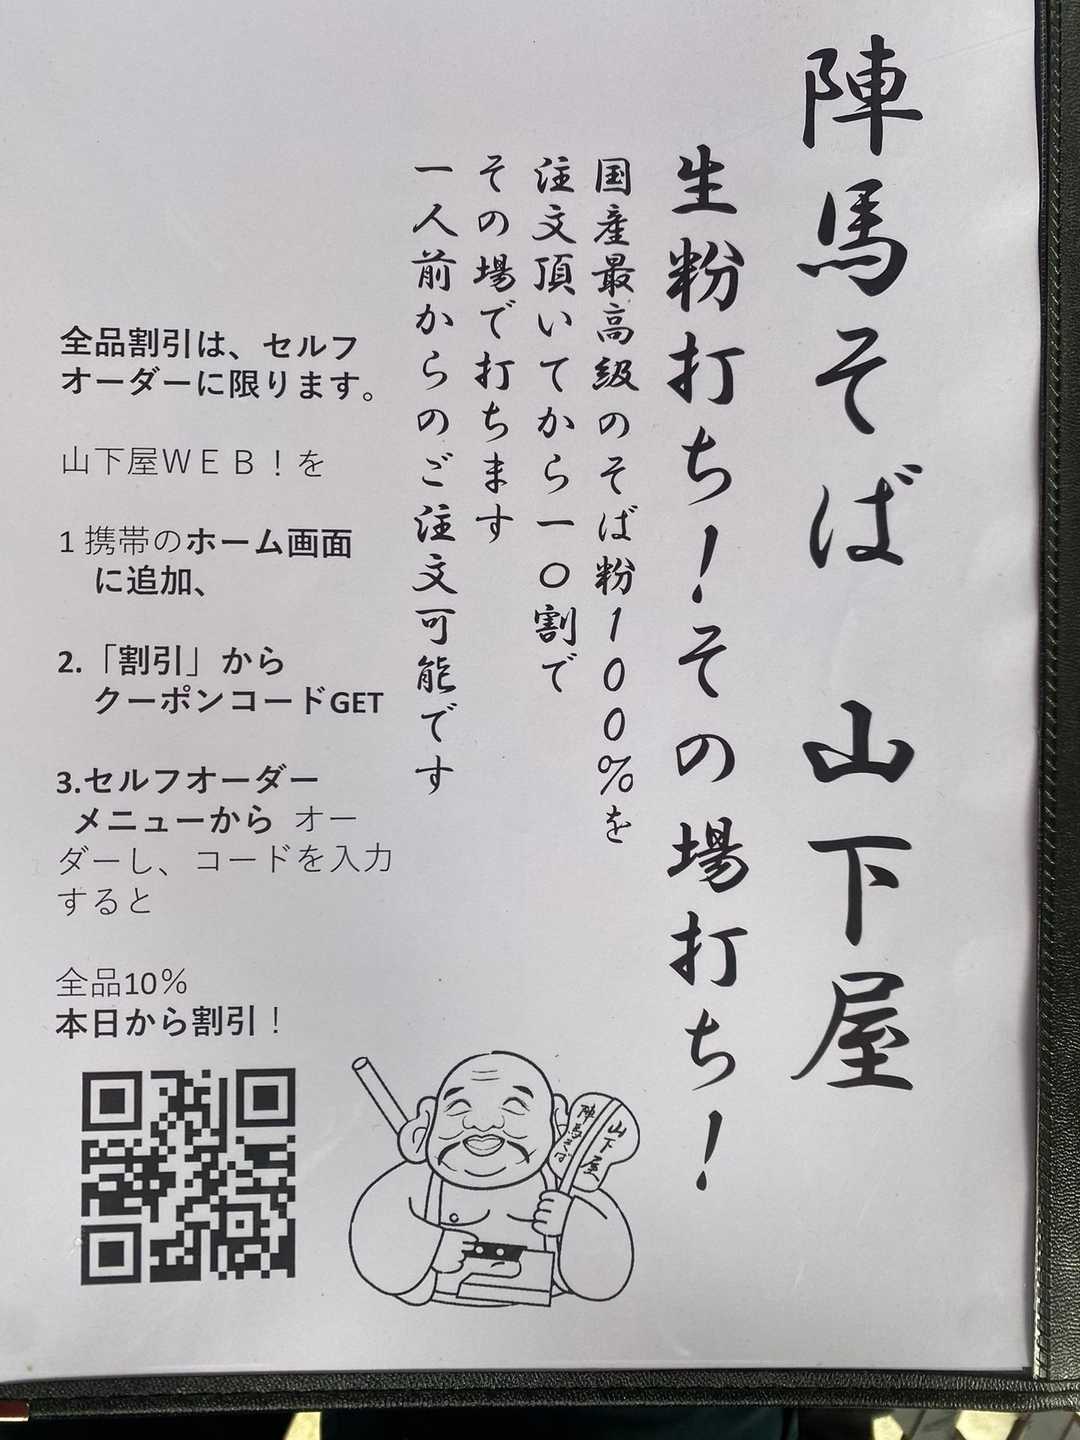 陣馬そば　山下屋
生粉打ち！その場打ち！
国産最高級のそば粉100%を
注文頂いてから一〇割で
その場で打ちます
一人前からのご注文可能です
全品割引は、セルフ
オーダーに限ります。
山下屋ＷＥＢ！を
1 携帯のホーム画面
に追加、
2.「割引」から
クーポンコードGET
3.セルフオーダー
メニューから オー
ダーし、コードを入力
すると
全品10％
本日から割引！
山下屋
陣馬そば